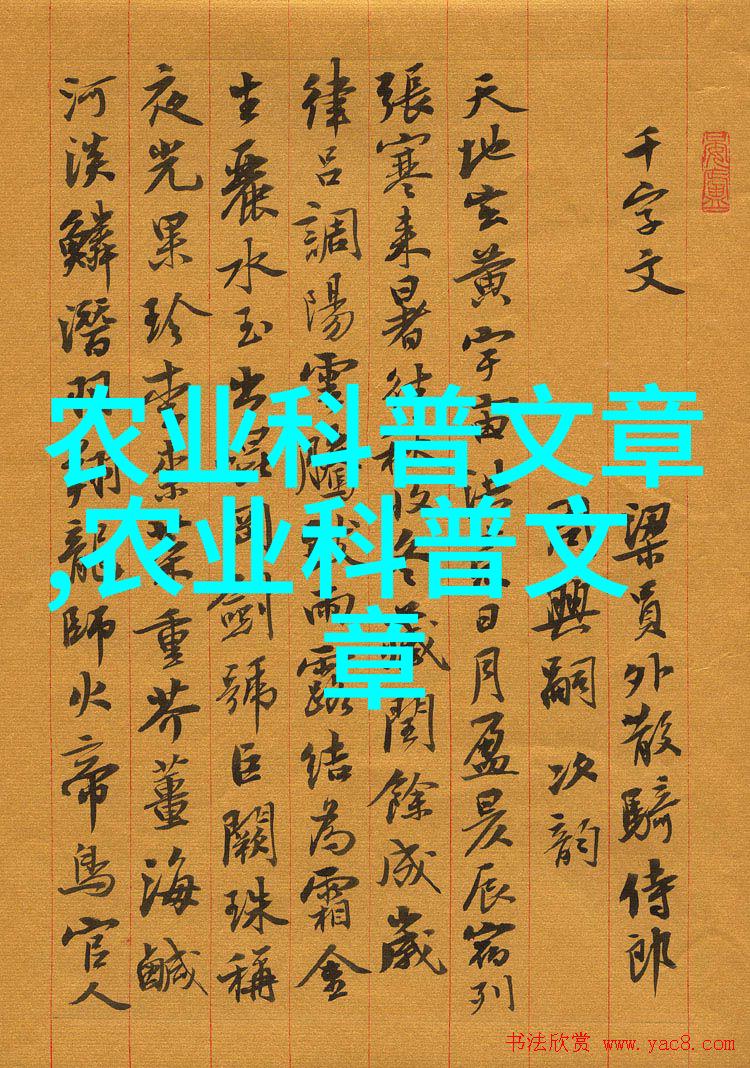 千字文
梁員外散騎侍郎
周興嗣次韵
天地玄黄宇宙洪荒日月盈昃辰宿列
張寒来暑往秋收冬蔵閏餘成歲
律吕調陽雲騰致雨露結為霜金
生麗水玉出崑岡劍號巨闕珠稱
夜光果珍李柰菜重芥薑海鹹
河淡鱗潛羽翔龍師火帝鳥官人
农业科普文章
,农业科普文
章
书法欣赏 www.yac8.com